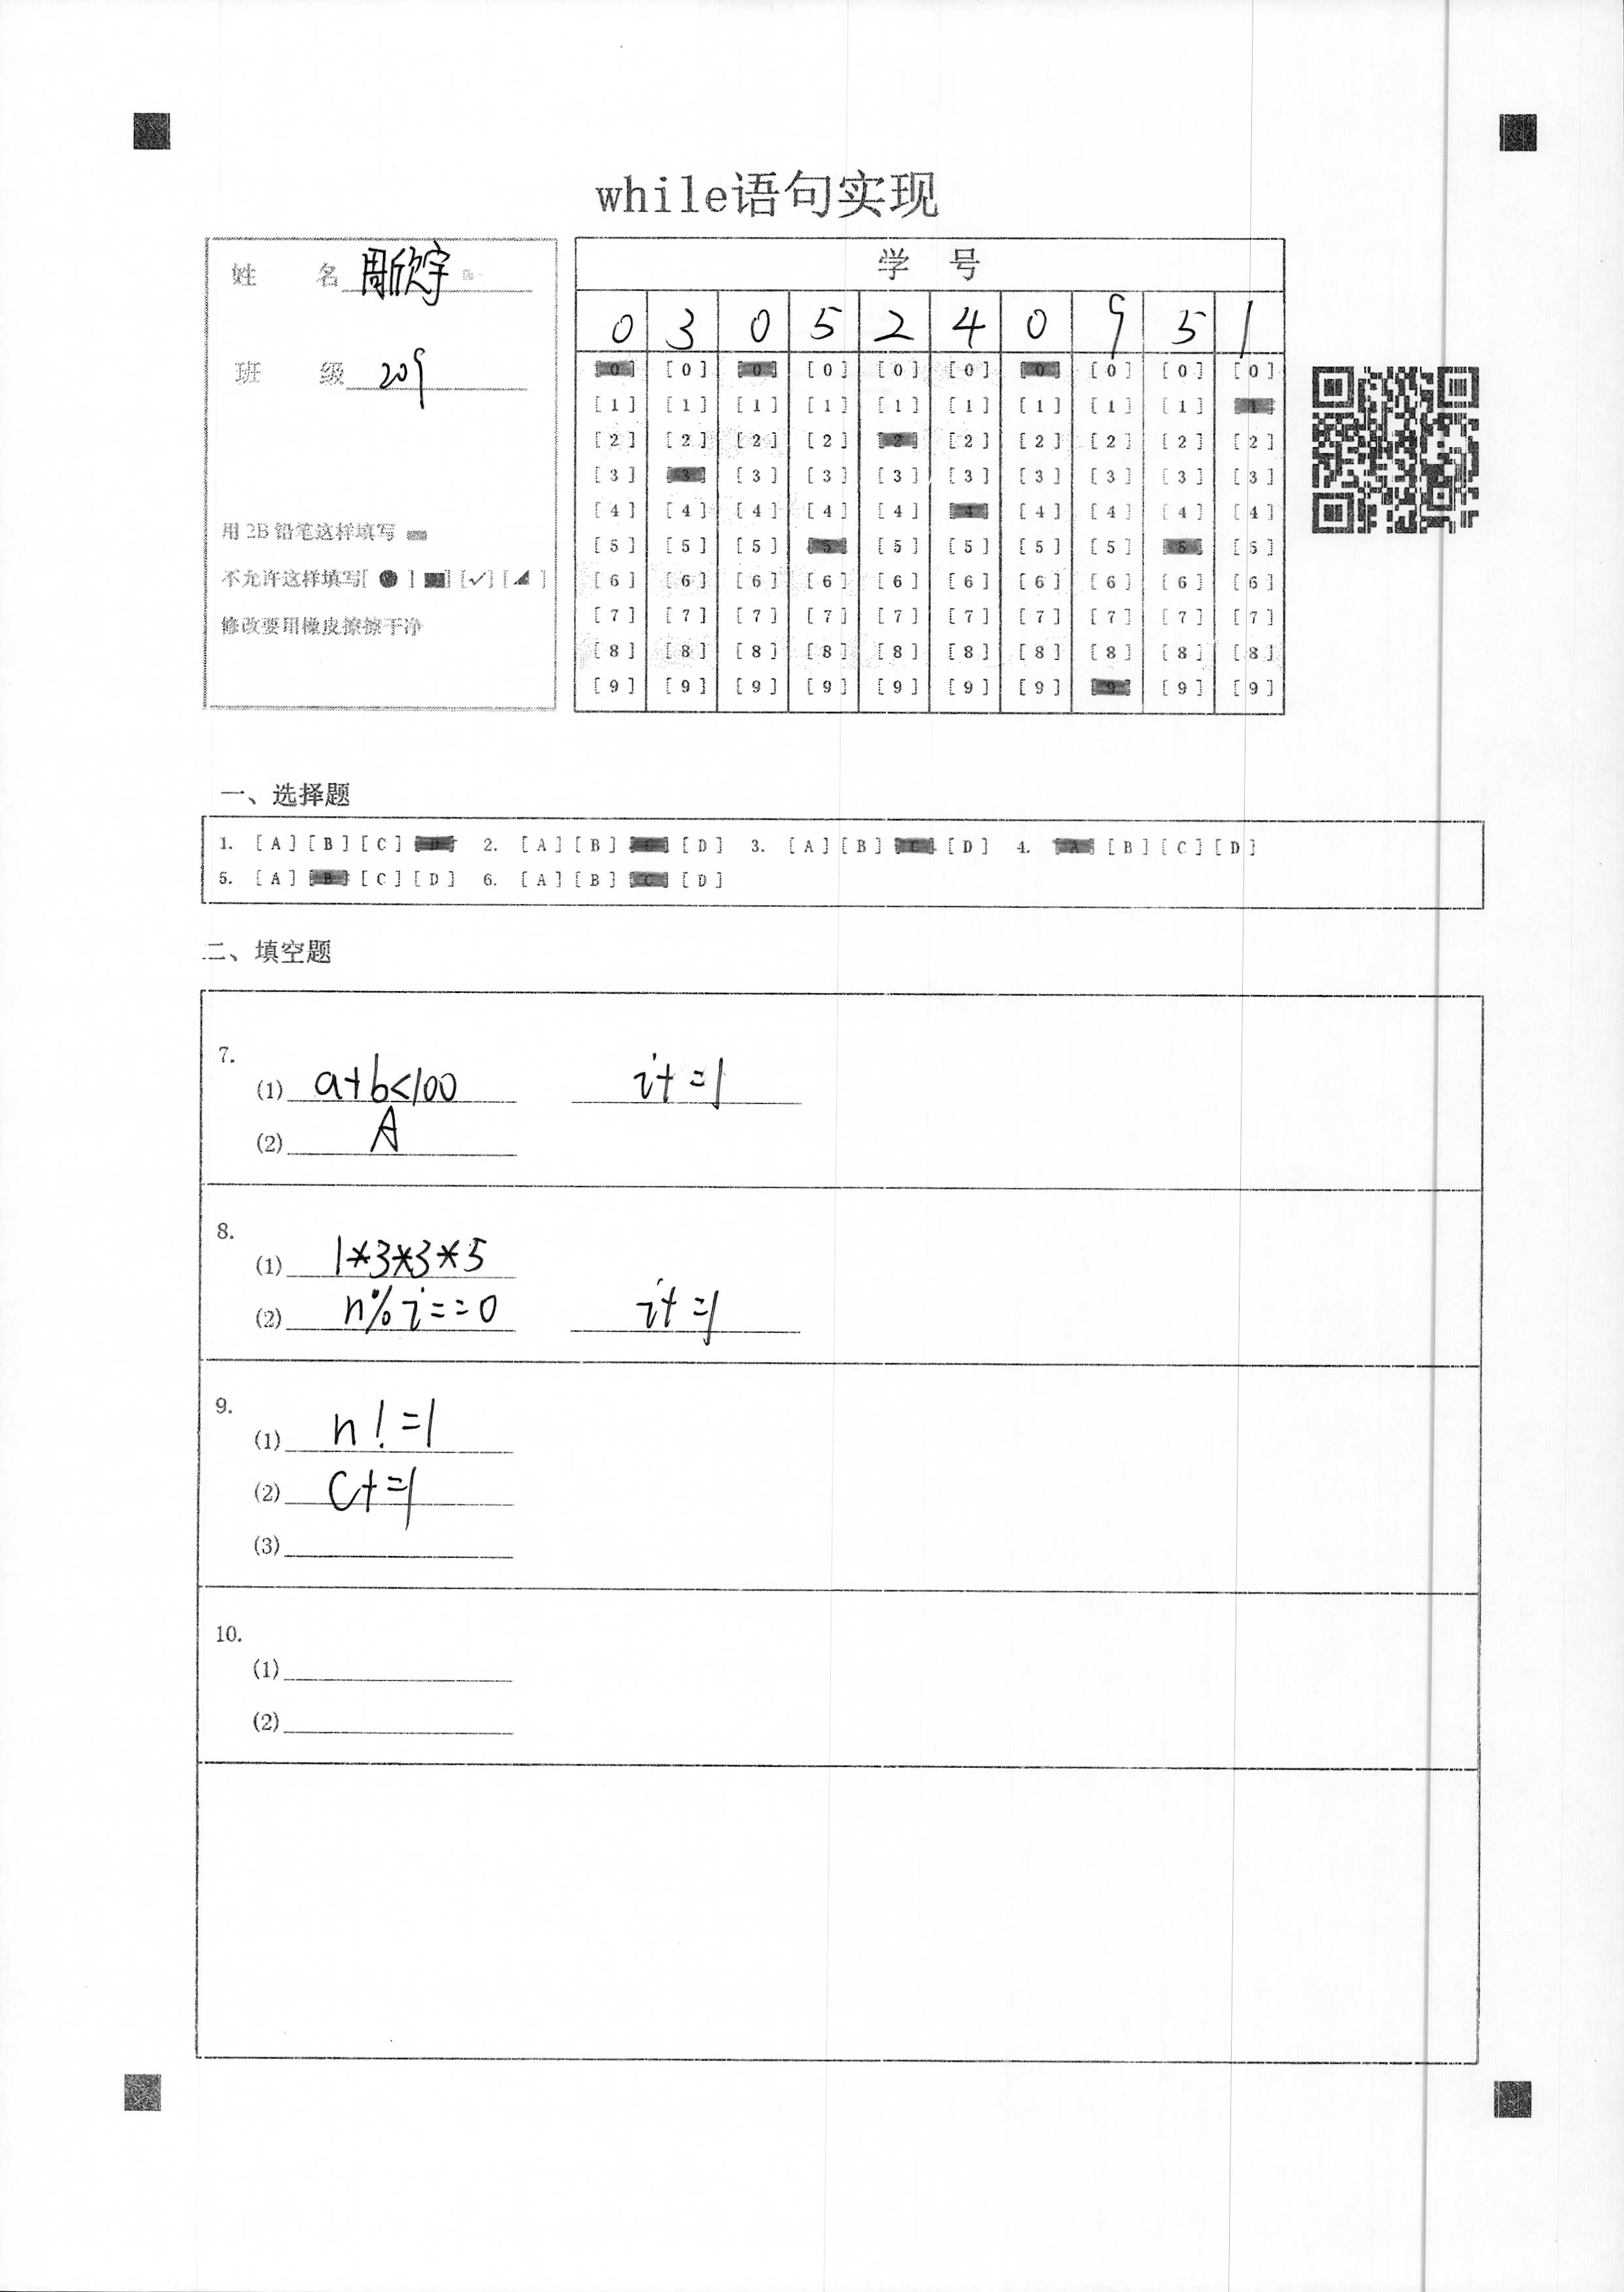 while语句实现
姓 名 周欣宇
班 级 209
用 2B 铅笔这样填写
不允许这样填写[ ● ] [■] [✓] [◢ ]
修改要用橡皮擦擦干净
学 号
0 3 0 5 2 4 0 9 5 1
[0] [0] [0] [0] [0] [0] [0] [0] [0] [0]
[1] [1] [1] [1] [1] [1] [1] [1] [1] [1]
[2] [2] [2] [2] [2] [2] [2] [2] [2] [2]
[3] [3] [3] [3] [3] [3] [3] [3] [3] [3]
[4] [4] [4] [4] [4] [4] [4] [4] [4] [4]
[5] [5] [5] [5] [5] [5] [5] [5] [5] [5]
[6] [6] [6] [6] [6] [6] [6] [6] [6] [6]
[7] [7] [7] [7] [7] [7] [7] [7] [7] [7]
[8] [8] [8] [8] [8] [8] [8] [8] [8] [8]
[9] [9] [9] [9] [9] [9] [9] [9] [9] [9]
一、选择题
1. [A] [B] [C] [D] 2. [A] [B] [C] [D] 3. [A] [B] [C] [D] 4. [A] [B] [C] [D]
5. [A] [B] [C] [D] 6. [A] [B] [C] [D]
二、填空题
7.
(1) a+b<100 i+=1
(2) A
8.
(1) 1*3*3*5
(2) n%i==0 i+=1
9.
(1) n!=1
(2) c+=1
(3)
10.
(1)
(2)